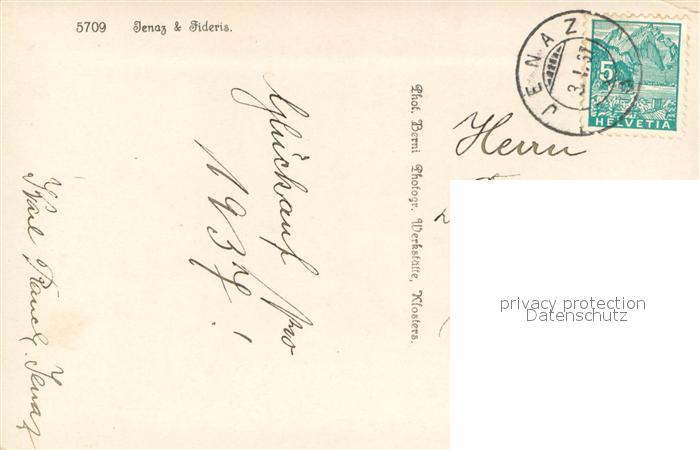 5709 Jenaz & Fideris.
JENAZ
3.1.37
5
HELVETIA
Glückauf pro
1937!
Jenaz
Phot. Berni Photogr. Werkstätte, Klosters.
Herrn
privacy protection
Datenschutz